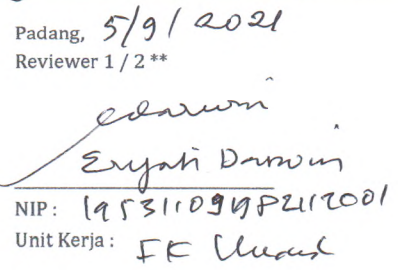 Padang, 5/9/2021
Reviewer 1 / 2 **
Eryati Darwin
NIP : 195311091982112001
Unit Kerja : FK Unand